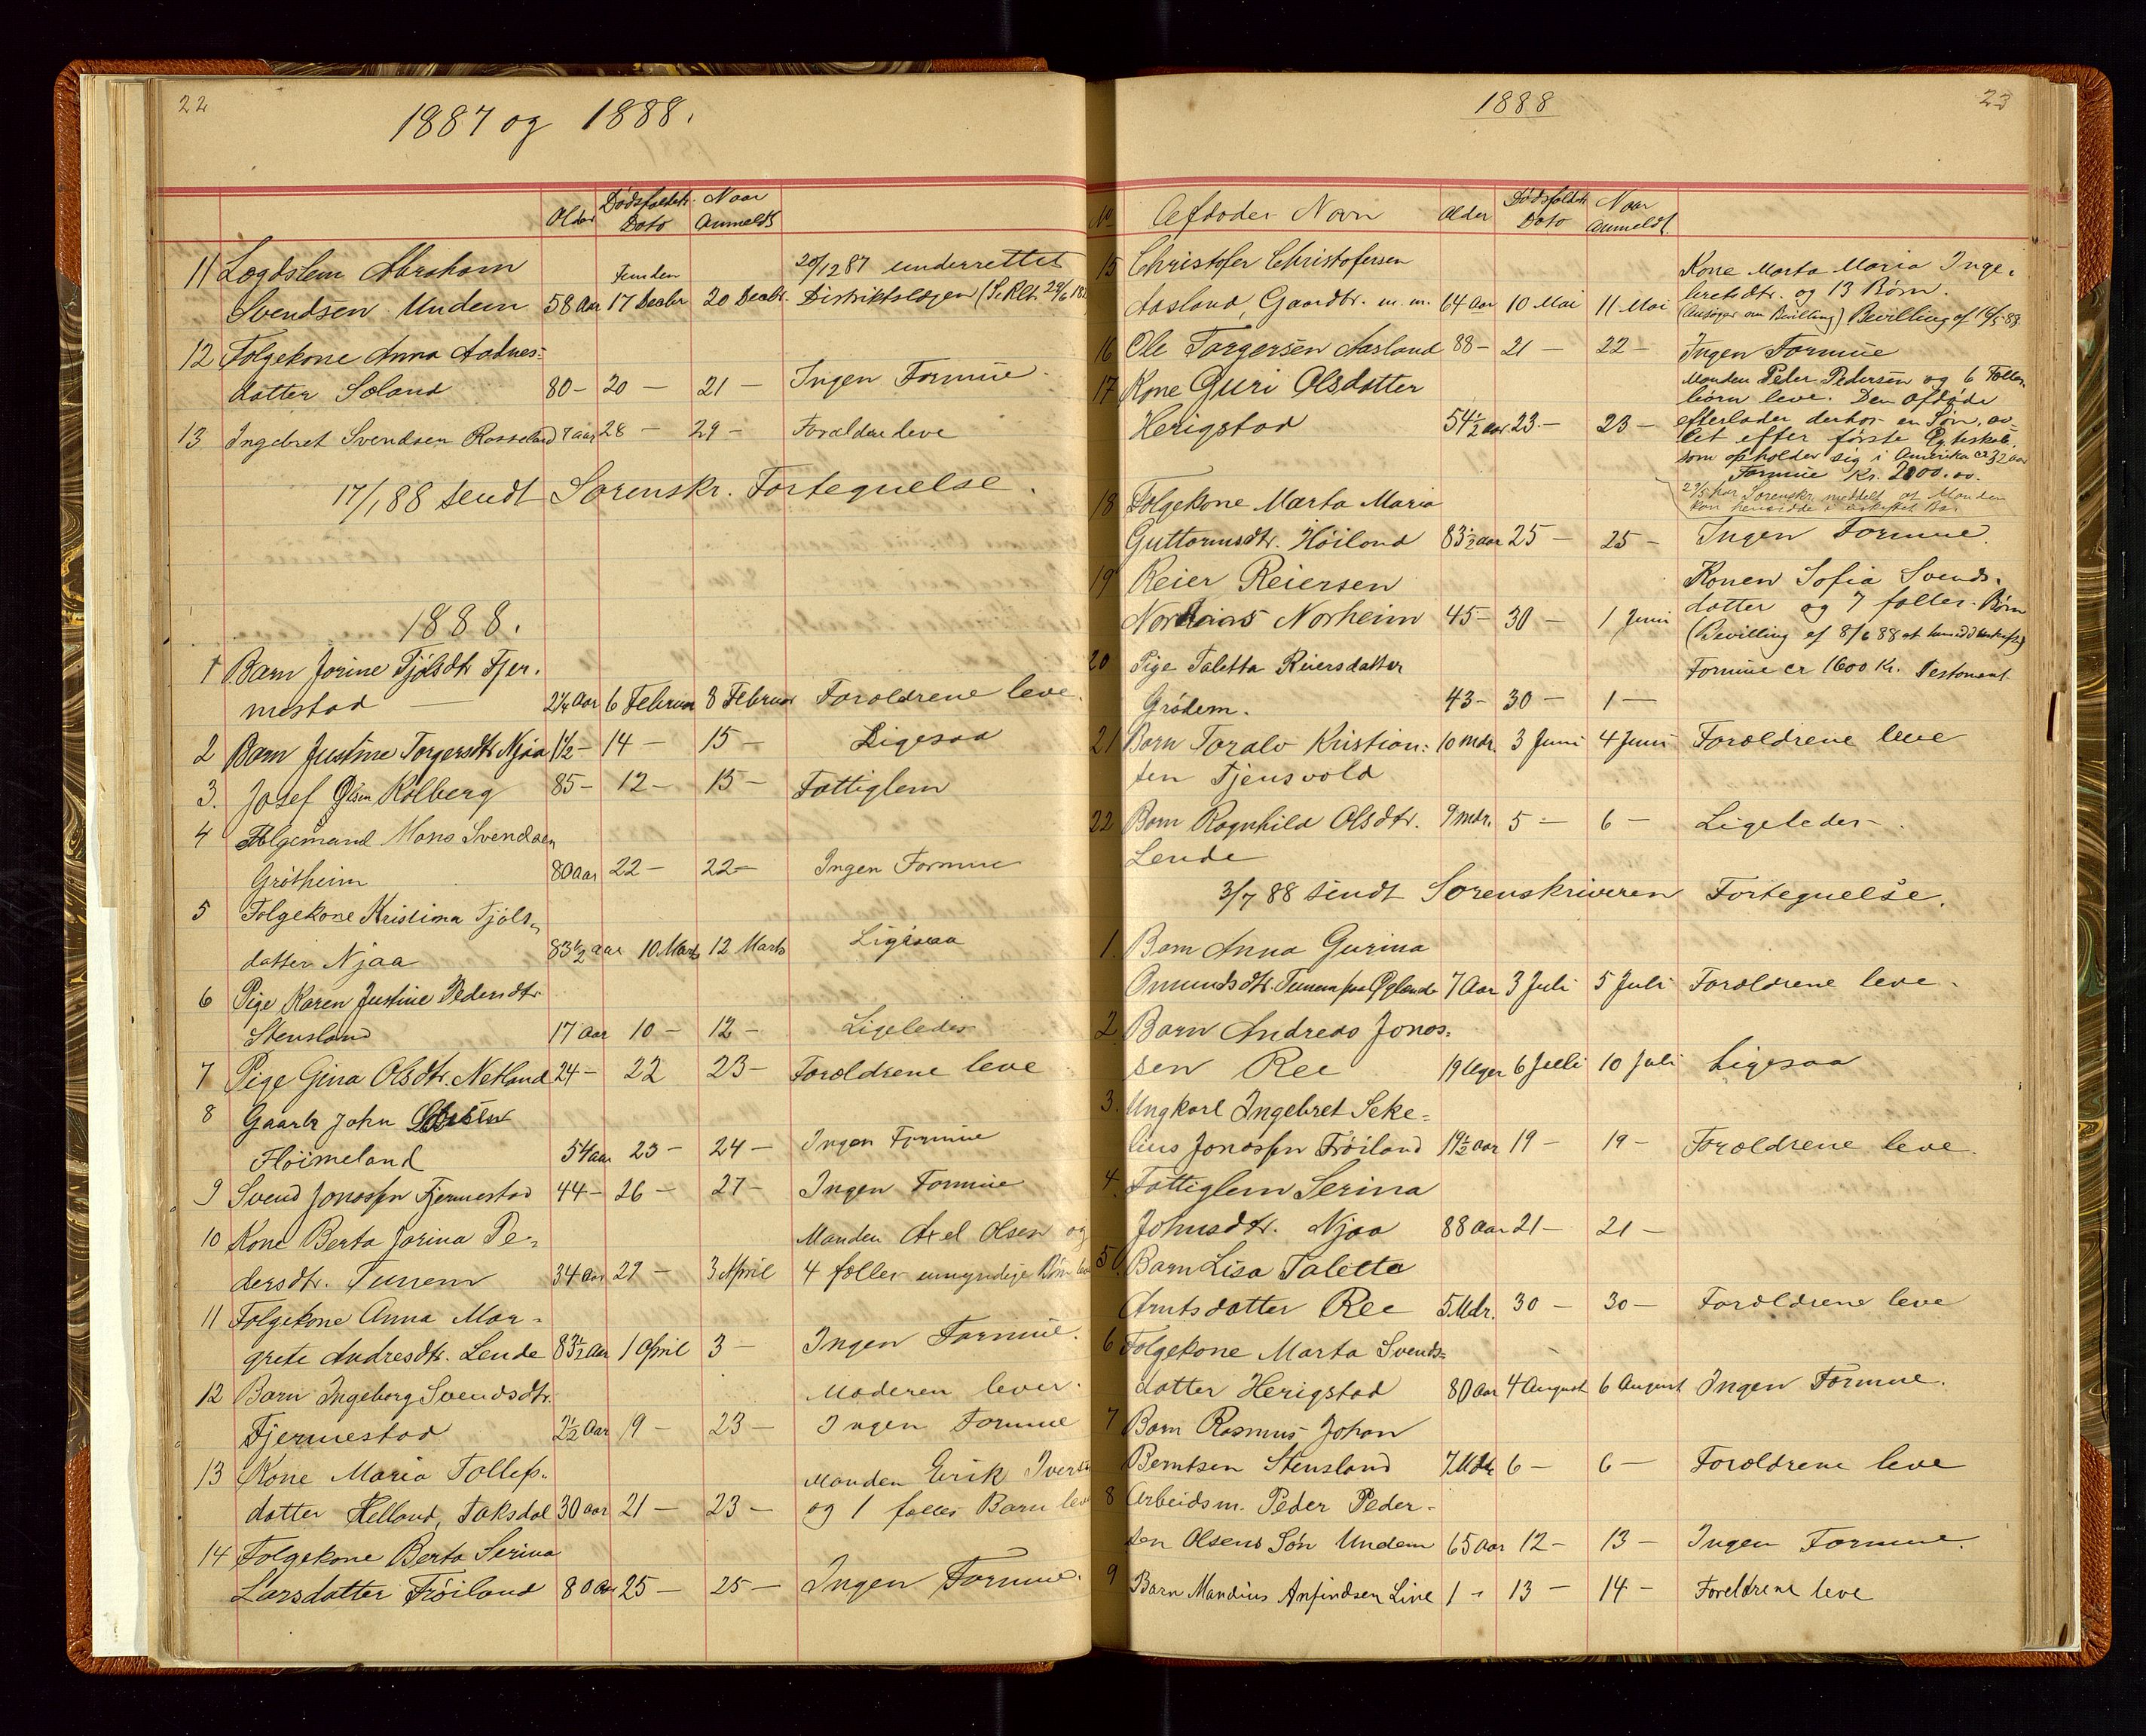 22
1887 og 1888.
Alder Dødsfaldets Dato Naar Anmeldt
11 Lægdslem Abraham 20/12 87 underrettet
Svendsen Undem 58 Aar 17 Decbr 20 Decbr. Distriktslægen
12 Folgekone Anna Aadnes-
datter Søland 80 - 20 - 21 - Ingen Formue
13 Ingebret Svendsen Rosseland 7 aar 28 - 29 - Forældre leve
17/1 88 sendt Sorenskr. Fortegnelse.
1888.
1 Barn Jorine Tjølsdtr Fjer-
mestad 2 1/4 Aar 6 Februar 8 Februar Forældrene leve.
2 Barn Justine Torgersdtr Njaa 1 1/2 - 14 - 15 - Ligesaa
3. Josef Olsen Kolberg 85 - 12 - 15 - Fattiglem
4 Folgemand Mons Svendsen
Grøtheim 80 aar 22 - 22 - Ingen Formue
5 Folgekone Kristina Tjøls-
datter Njaa 83 1/2 aar 10 Marts 12 Marts Ligesaa
6 Pige Karen Justine Pedersdtr
Stensland 17 aar 10 - 12 - Ligeledes
7 Pige Gina Olsdtr. Netland 24 - 22 23 - Forældrene leve
8 Gaarbr John Larsen
Høimeland 54 aar 23 - 24 - Ingen Formue
9 Svend Jonassen Fjermestad 44 - 26 - 27 - Ingen Formue
10 Kone Berta Jorina Pe- Manden Axel Olsen og
dersdtr. Tunem 34 Aar 27 - 3 April 4 fælles umyndige Børn leve
11 Folgekone Anna Mar-
grete Andresdtr. Lende 83 1/2 Aar 1 April 3 - Ingen Formue.
12 Barn Ingeborg Svendsdtr. Moderen lever.
Fjermestad 2 1/2 Aar 19 - 23 - Ingen Formue
13 Kone Maria Tollefs- Manden Eirik Iversen
datter Helland, Taksdal 30 aar 21 - 23 - og 1 fælles Barn leve
14 Folgekone Berta Serina
Larsdatter Frøiland 80 Aar 25 - 25 - Ingen Formue.
1888
23
No Afdødes Navn Alder Dødsfaldets Dato Naar Anmeldt.
15 Christofer Christofersen Kone Marta Maria Inge-
Aasland, Gaardbr. m.m. 64 aar 10 Mai 11 Mai bretsdtr. og 13 Børn.
(Ansøger om Bevilling) Bevilling af 19/5 88
16 Ole Torgersen Aasland 88 - 21 - 22 - Ingen Formue
17 Kone Guri Olsdatter Manden Peder Pedersen og 6 Fælles
børn leve. Den Afdøde
Herigstad 54 1/2 aar 23. - 23 - efterlader derhos en Søn, av-
let efter første Egteskab,
som opholder sig i Amerika er 32 aar
Formue Kr. 2000.00.
18 Folgekone Marta Maria 29/5 har Sorenskr. meddelt at Manden
kan hensidde i uskiftet Bo.
Guttormsdtr. Høiland 83 1/2 aar 25 - 25 - Ingen Formue.
19 Reier Reiersen Konen Sofia Svends-
Norheim 45 - 30 - 1 Juni datter og 7 fælles Børn
(Bevilling af 8/6 88 at hensidde i uskiftet)
20 Pige Taletta Reiersdatter Formue er 1600 Kr. Testament
Grødem. 43 - 30 - 1 -
21 Barn Toralv Kristian- 10 Mdr. 3 Juni 4 Juni Forældrene leve
sen Tjensvold
22 Barn Ragnhild Olsdtr. 9 Mdr. 5 - 6 - Ligeledes
Lende
3/7 88 sendt Sorenskriveren Fortegnelse.
1. Barn Anna Gurina
Omundsdtr. Tunem paa Øglænd 7 Aar 3 Juli 5 Juli Forældrene leve.
2 Barn Andreas Jonas-
sen Ree 19 Uger 6 Juli 10 Juli Ligesaa
3. Ungkarl Ingebret Seke-
lius Jonassen Frøiland 19 1/2 aar 19 - 19 - Forældrene leve.
4. Fattiglem Serina
Johnsdtr. Njaa 88 aar 21 - 21 -
5 Barn Lisa Taletta
Arntsdatter Ree 5 Mdr. 30 - 30 - Forældrene leve
6 Folgekone Marta Svends-
datter Herigstad 80 aar 4 August 6 August Ingen Formue.
7 Barn Rasmus Johan
Berntsen Stensland 7 Mdr 6 - 6 - Forældrene leve
8 Arbeidsm. Peder Peder-
sen Olsens Søn Undem 65 Aar 12 - 13 - Ingen Formue.
9 Barn Mandius Anfindsen Line 1 - 13 - 14 - Foreldrene leve